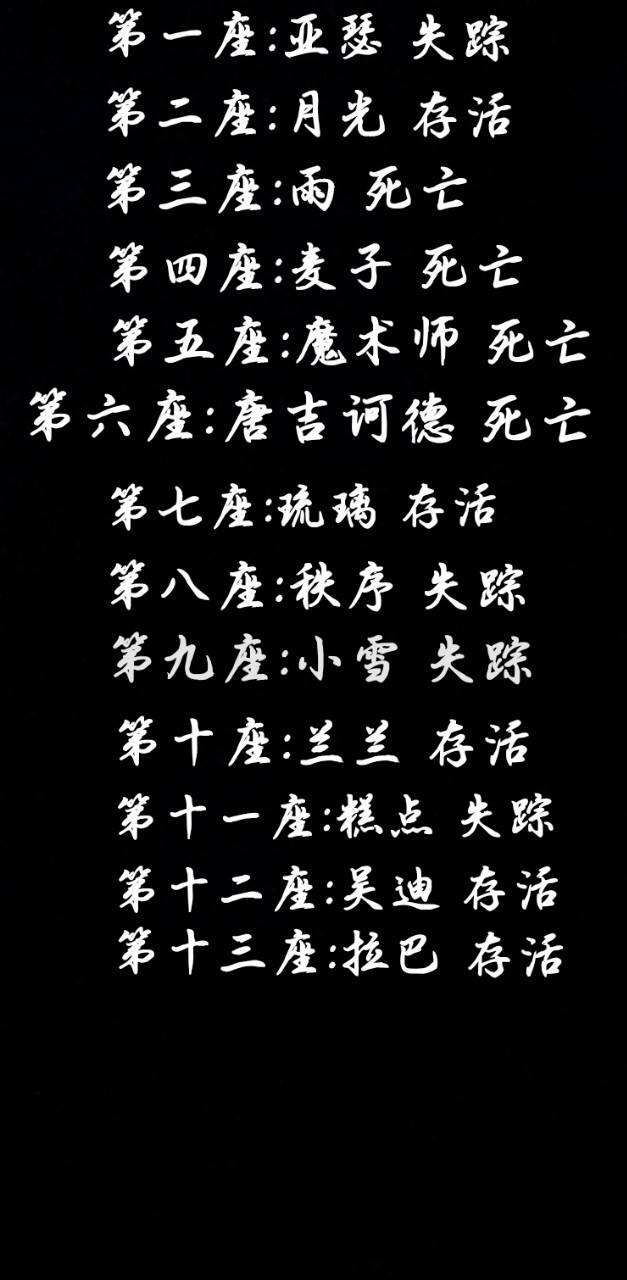 第一座:亚瑟 失踪
第二座:月光 存活
第三座:雨 死亡
第四座:麦子 死亡
第五座:魔术师 死亡
第六座:唐吉诃德 死亡
第七座:琉璃 存活
第八座:秩序 失踪
第九座:小雪 失踪
第十座:兰兰 存活
第十一座:糕点 失踪
第十二座:吴迪 存活
第十三座:拉巴 存活